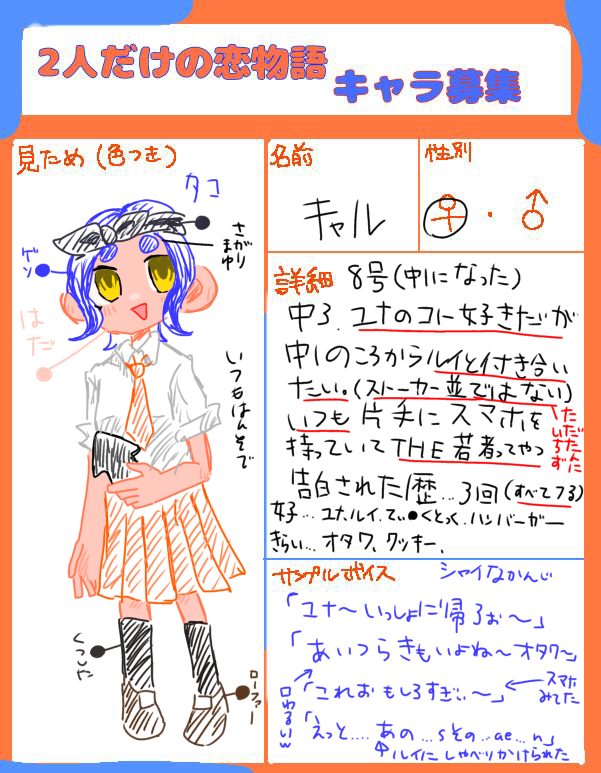 2人だけの恋物語
キャラ募集
見ため(色つき)
タコ
さがり
まゆ
ゲソ
はだ
いつもはんそで
くつした
ローファー
名前
キャル
性別
♀・♂
詳細 8号(中1になった)
中3、ユナのコト女子きだが
中1のころからルイと付き合い
たい。(ストーカー並ではない)
いつも片手にスマホを
持っていてTHE若者ってやつ
ただたんに
いちず
告白された歴…3回(すべてフる)
女子…ユナ、ルイ、てぃ●くとっく、ハンバーガー
きらい…オタク、クッキー、
サンプルボイス
シャイなかんじ
「ユナ〜いっしょに帰ろぉ〜」
「あいつらきもいよね〜オタク〜」
「これおもしろすぎぃ〜」
←スマホ
みてた
口わるいw
「えっと....あの...sその...ae...n」
ルイにしゃべりかけられた